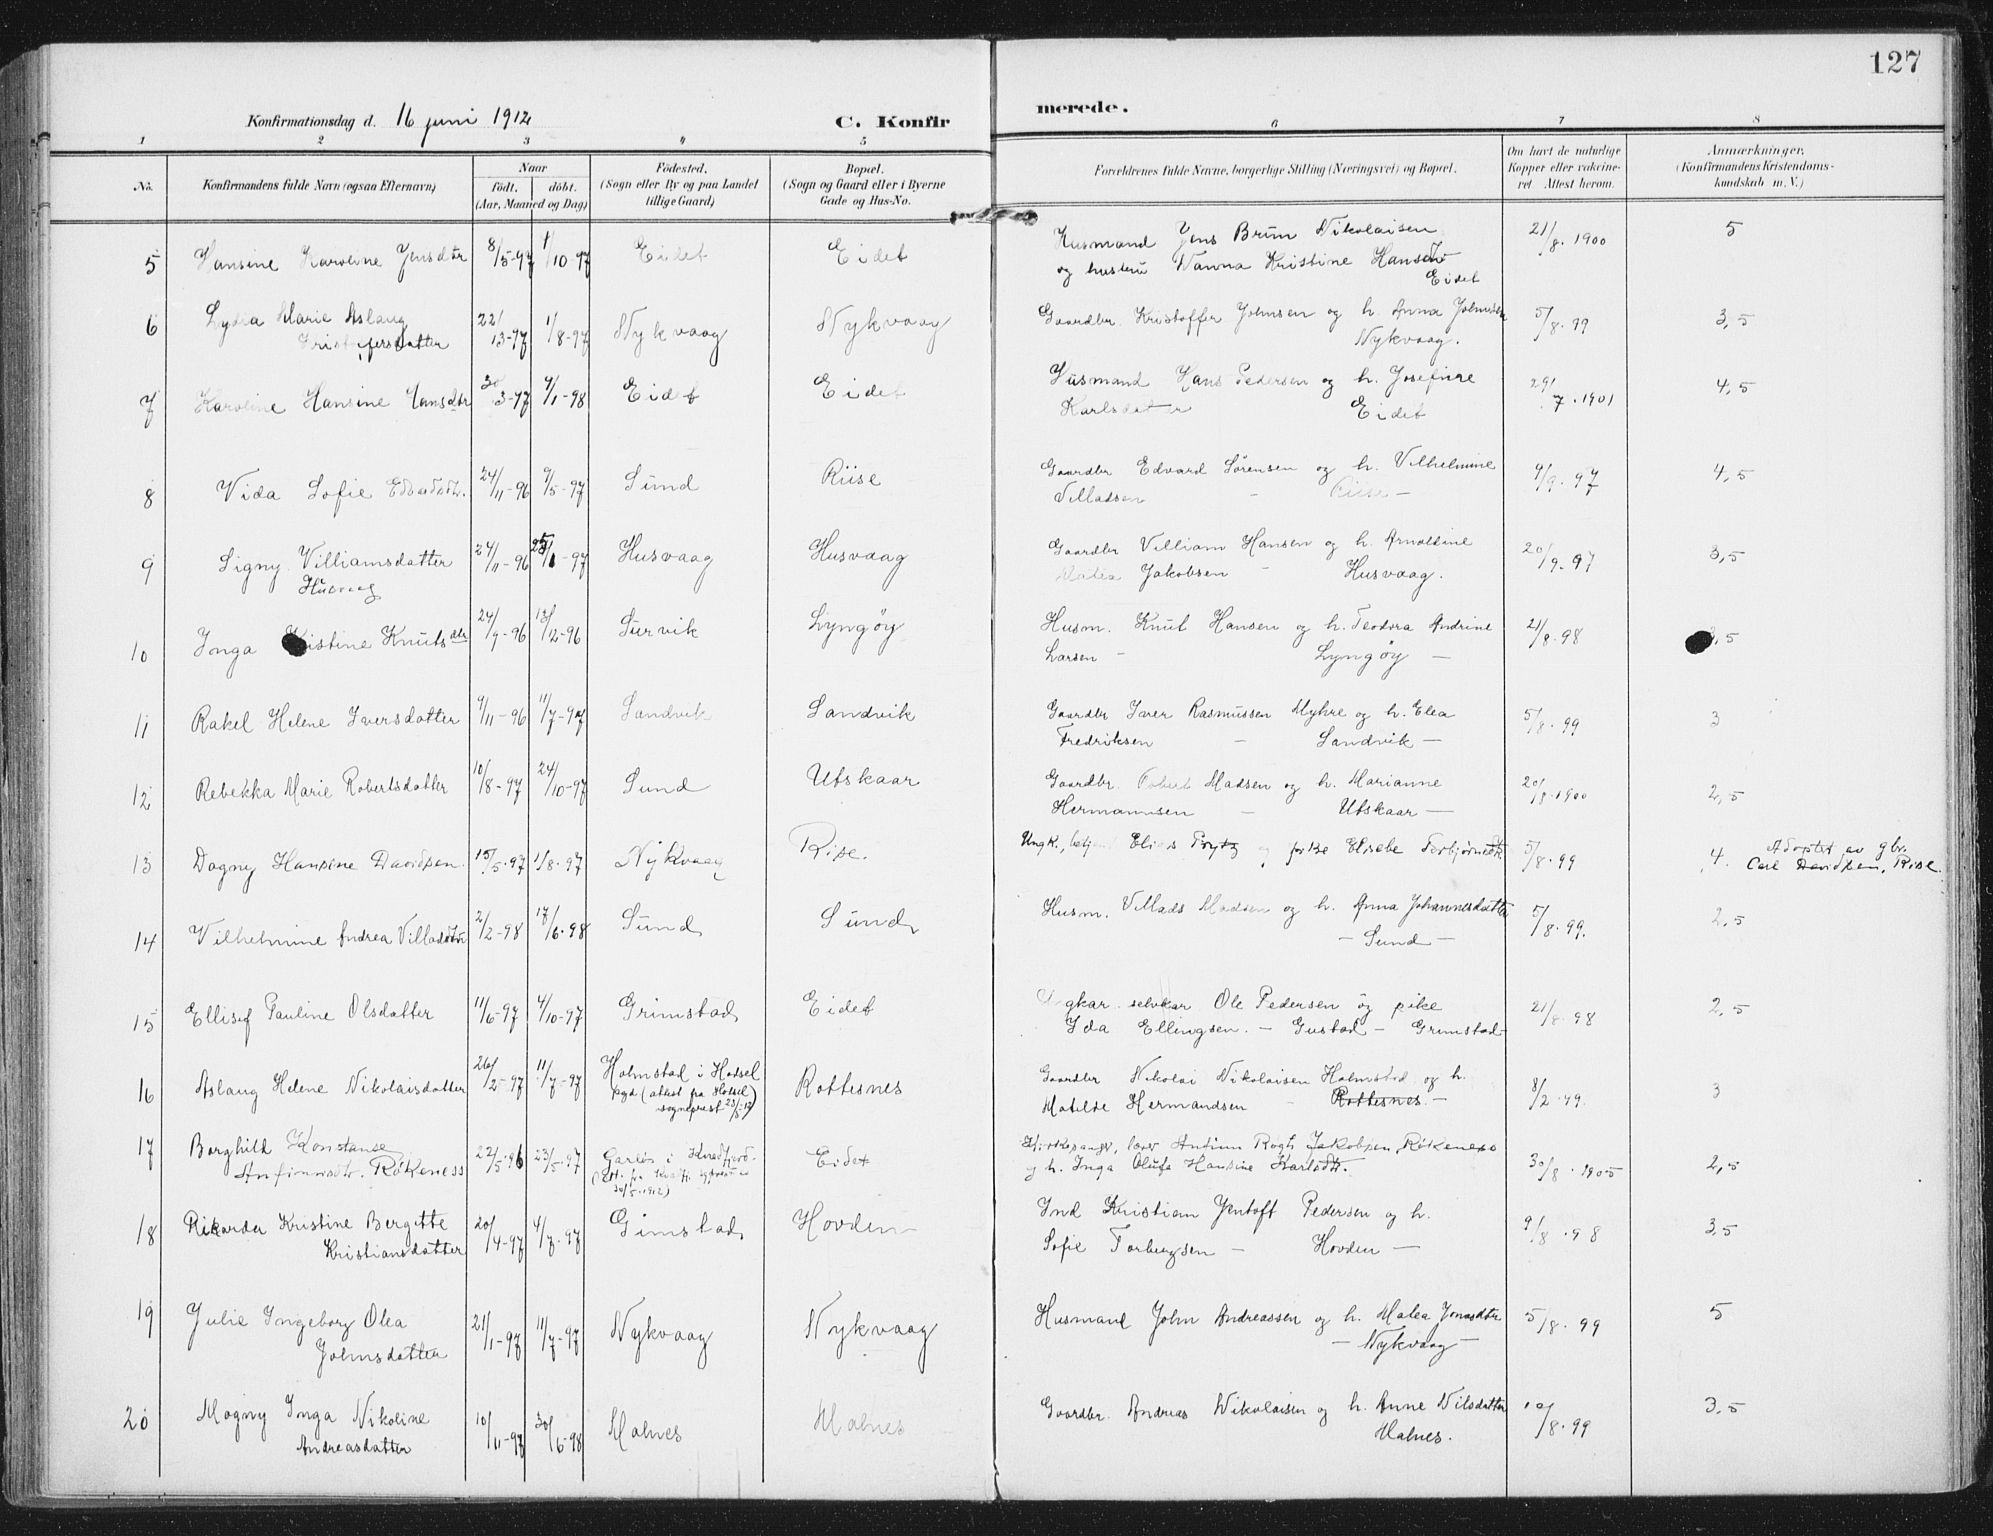 127
Konfirmationsdag d. 16 juni 1912
C. Konfirmerede.
1 2 3 4 5 6 7 8
No.
Konfirmandens fulde Navn (ogsaa Efternavn)
Naar
födt. döbt.
(Aar, Maaned og Dag)
Födested.
(Sogn eller By og paa Landet
tillige Gaard)
Bopæl.
(Sogn og Gaard eller i Byerne
Gade og Hus-No.
Forældrenes fulde Navne, borgerlige Stilling (Næringsvei) og Bopæl.
Om havt de naturlige
Kopper eller vakcine-
ret Attest herom.
Anmærkninger,
(Konfirmandens Kristendoms-
kundskab m. V.)
5 Hansine Karoline Jensdtr 8/5-97 1/10-97 Eidet Eidet Husmand Jens Brun Nikolaisen 21/8.1900 5
og hustru Nanna Kristine Hansdtr
Eidet
6 Lydia Marie Aslaug 1/8-97 Nykvaag Nykvaag Gaardbr. Kristoffer Johnsen og h. Anna 5/8.99 3,5
Kristofersdatter Nykvaag.
7 Karoline Hansine Hansdtr 30/3-97 9/1-98 Eidet Eidet Husmand Hans Pedersen og h. Josefine 29/7.1901 4,5
Karlsdatter Eidet
8 Vida Sofie 24/11-96 9/5-97 Sund Riise Gaardbr Edvard Sörensen og h. Vilhelmine 9/9.97 4,5
Villadsen - Riise -
9 Signy Villiamsdatter 24/11-96 Husvaag Husvaag Gaardbr Villiam Hansen og h. Arnoldine 20/9.97 3,5
Husvaag Jakobsen - Husvaag.
10 Inga istine Knutsdtr 24/9-96 13/12-96 Survik Lyngöy Husm. Knut Hansen og h. Teodora Andrine 21/8.98 3,5
Larsen - Lyngöy -
11 Rakel Helene Iversdatter 9/11-96 11/7-97 Sandvik Sandvik Gaardbr Iver Rasmussen Myhre og h. Elea 5/8.99 3
Fredriksen - Sandvik -
12 Rebekka Marie Robertsdatter 10/8-97 24/10-97 Sund Utskaar Gaardbr. Robert Madsen og h. Marianne 20/8.1900 2,5
Hermannsen Utskaar -
13 Dagny Hansine Davidsen 15/5.97 1/8.97 Nykvaag Rise. Ungk., Elias Prytz og Elisebe 5/8.99 4. Adoptet av gbr.
Carl Davidsen, Rise.
14 Vilhelmine Andrea Villadsdtr 2/2-98 17/6.98 Sund Sund Husm. Villads Madsen og h. Anna Johannesdatter 5/8.99. 2,5
- Sund -
15 Ellisef Pauline Olsdatter 11/6-97 4/10-97 Grimstad Eidet selvkar Ole Pedersen og pike 21/8.98 2,5
Ida Ellingsen. - Gustad - Grimstad
16 Aslaug Helene Nikolaisdatter 26/2-97 11/7-97 Holmstad i Hadsel Rottesnes Gaardbr Nikolai Nikolaisen Holmstad og h. 8/2.99. 3
pgd (attest fra Hadsel
sogneprest 23/5-12) Matilde Hermandsen - Rottesnes -
17 Borghild Konstanse 22/5.96 23/5-97 i Kvedfjord Eidet Kirkesanger, lærer Rogh Jakobsen Rökeness 30/8.1905 2,5
Anfinnsdtr. Rökeness og h. Inga Olufa Hansine Karlsdtr.
30/5.1912)
18 Rikarda Kristine Bergitte 20/4-97 4/7-97 Gimstad Hovden Ind Kristian Jentoft Pedersen og h. 9/8.98 3,5
Kristiansdatter Sofie Torbergsen - Hovden -
19 Julie Ingeborg Olea 21/1-97 11/7-97 Nykvaag Nykvaag Husmand John Andreassen og h. Malea Jonasdtr 5/8.99 5
Johnsdatter - Nykvaag -
20 Magny Inga Nikoline 10/11-97 30/6-98 Malnes Malnes Gaardbr. Andreas Nikolaisen og h. Anne Nilsdatter 10/8.99 3,5
Andreasdatter Malnes.